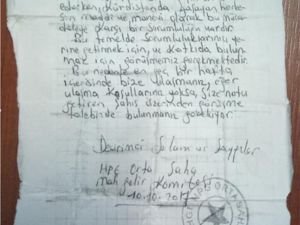 ederken, Kürdistanda yaşayan herke-
sin maddi ve manevi olarak bu müca-
deleye karşı bir sorumluluğu vardır.
Bu temelde sorumluluklarını ye-
rine getirmek için, ve katkıda bulun-
mak için görüşmeniz gerekmektedir.
Bu nedenle en geç bir hafta
içerisinde bize ulaşmanız, eğer
ulaşma koşullarınız yoksa, size notu
getiren şahıs üzerinden görüşme
talebinde bulunmanız gerekiyor.
Devrimci Selam ve Saygılar
HPG Orta Saha
Komitesi
10.10.2017